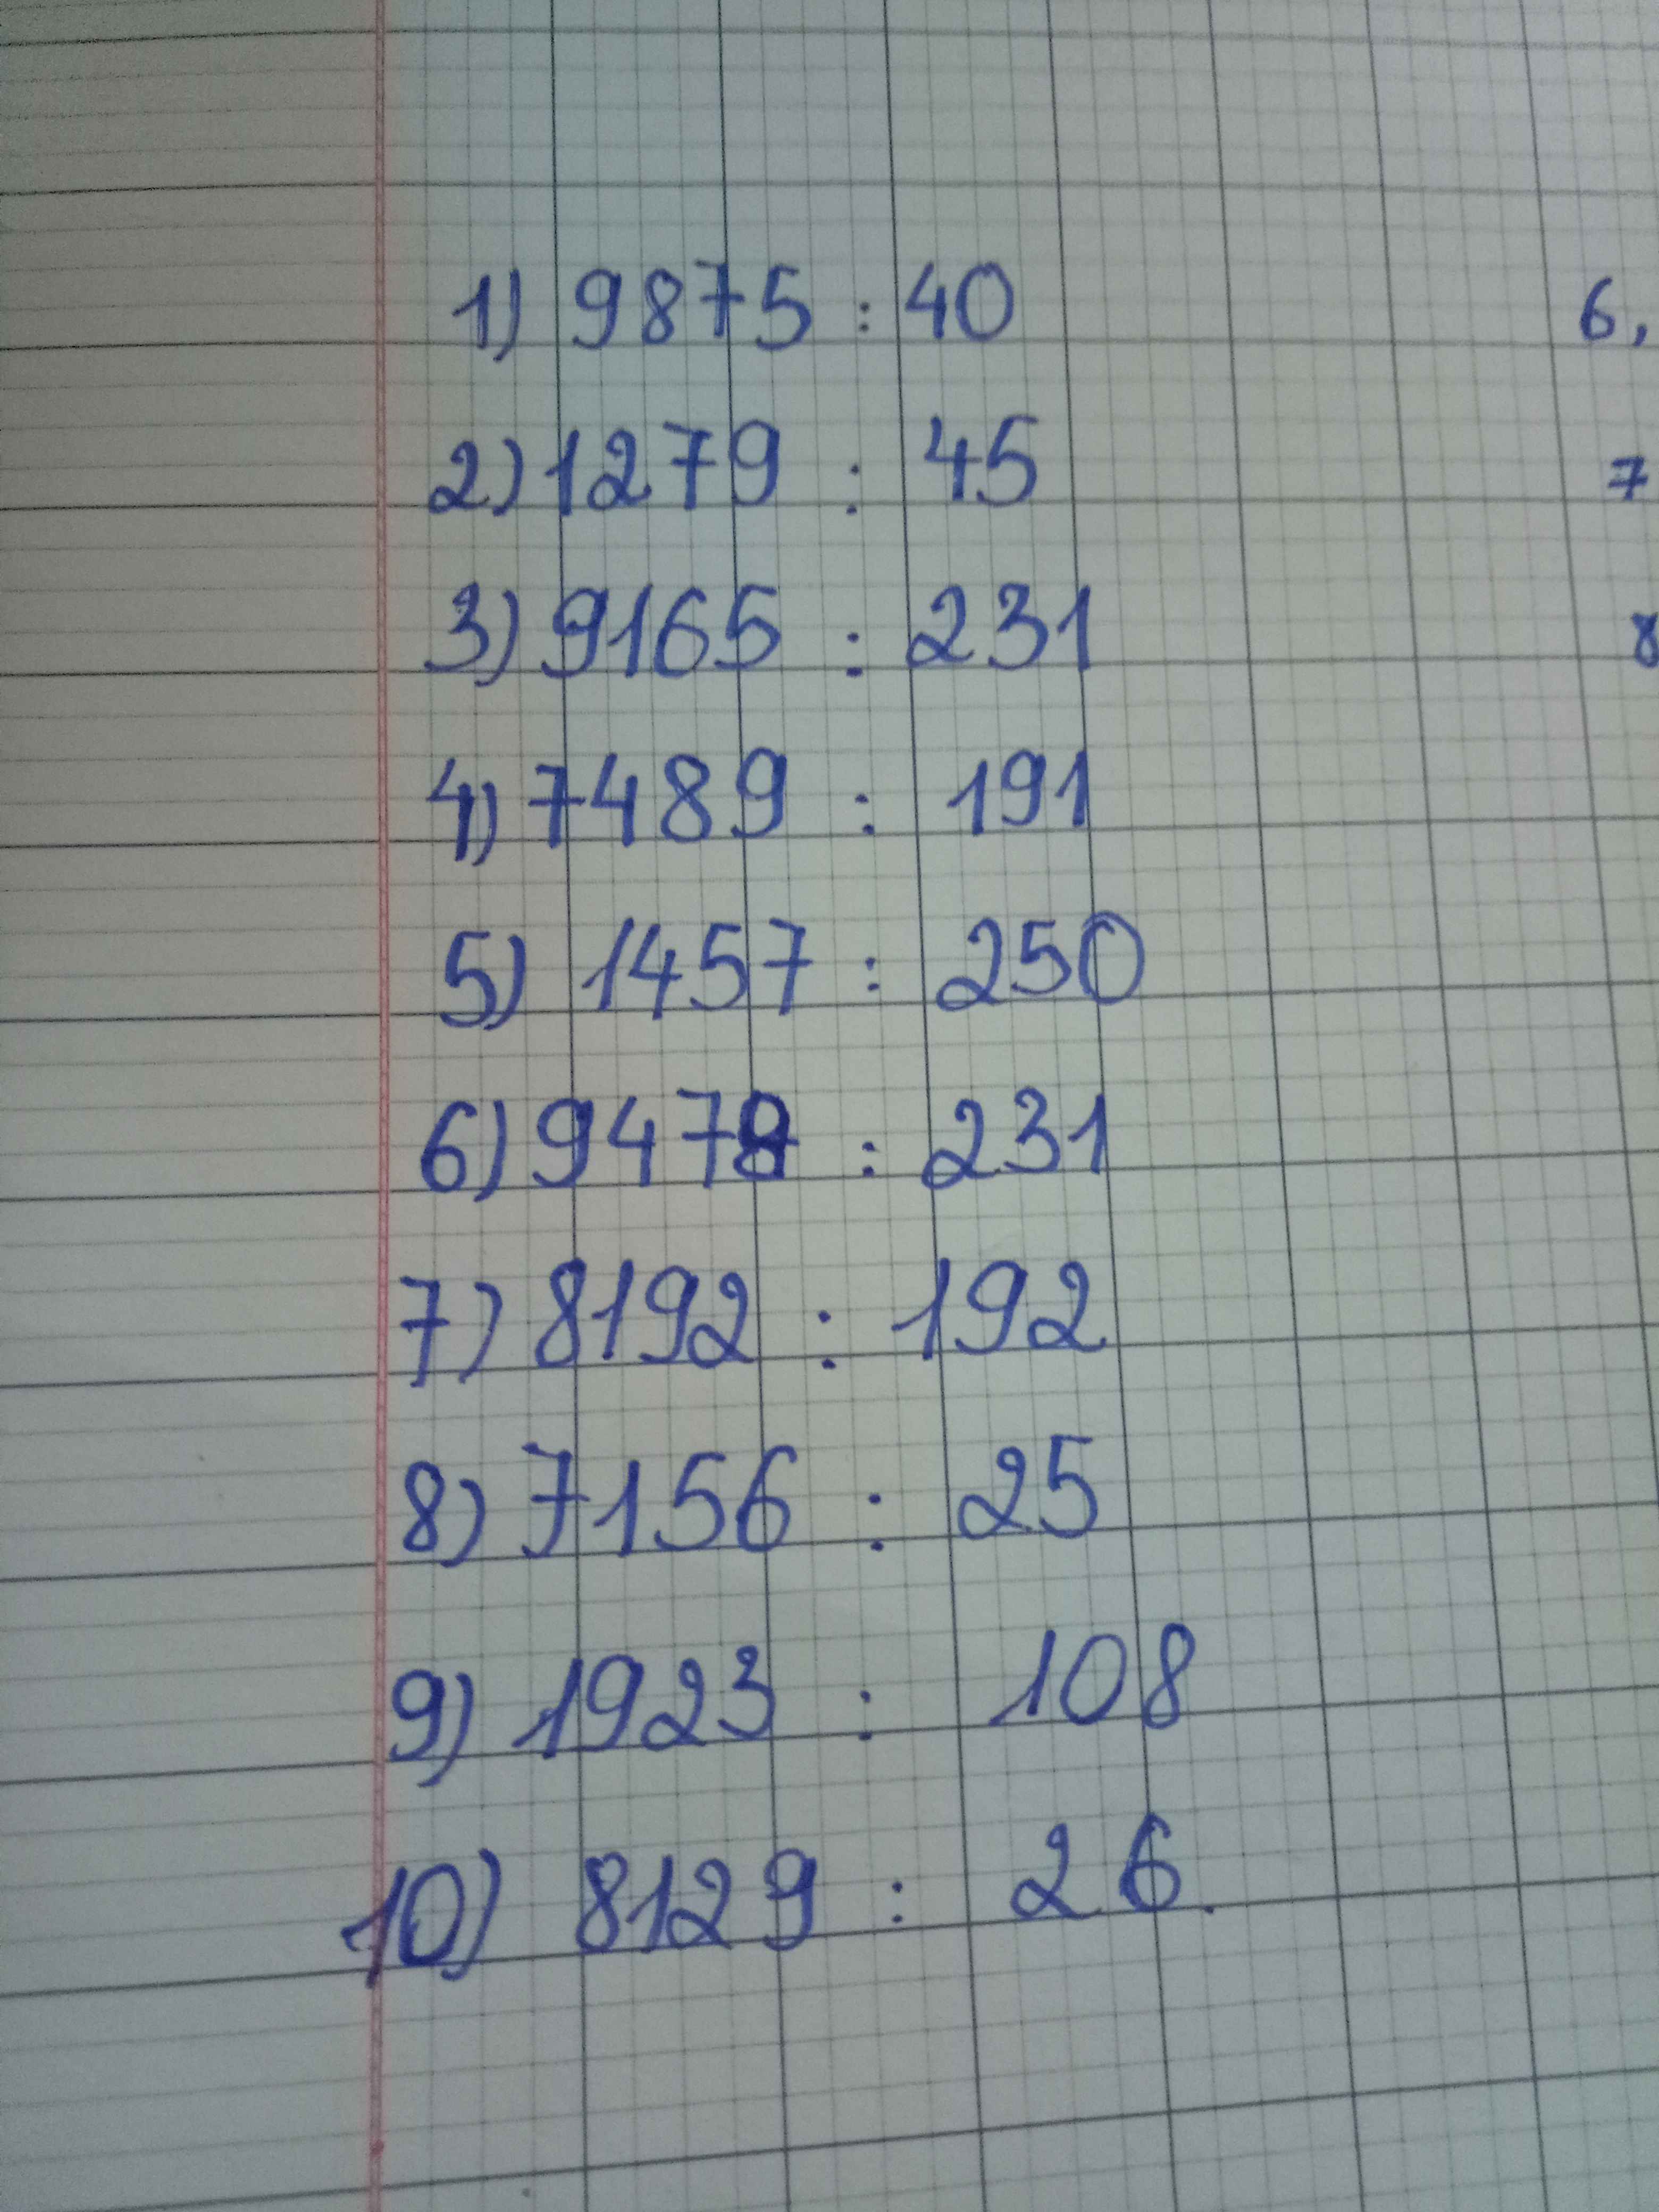 1) 9875 : 40
2) 1279 : 45
3) 9165 : 231
4) 7489 : 191
5) 1457 : 250
6) : 231
7) 8192 : 192
8) 7156 : 25
9) 1923 : 108
10) 8129 : 26.
6,
7
8